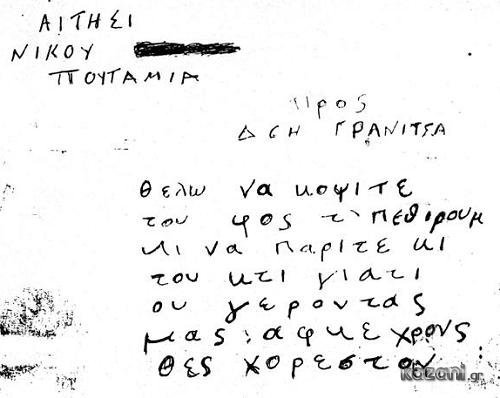 ΑΙΤΗΣΙ
ΝΙΚΟΥ
ΠΟΥΤΑΜΙΑ
Προς
ΔΣΗ ΓΡΑΝΙΤΣΑ
θελω να κοψιτε
του φος τ' πεθιρουμ
κι να παριτε κι
του κτι γιατι
ου γεροντας
μας αφκε χρονς
θες χορεστον
kozani.gr